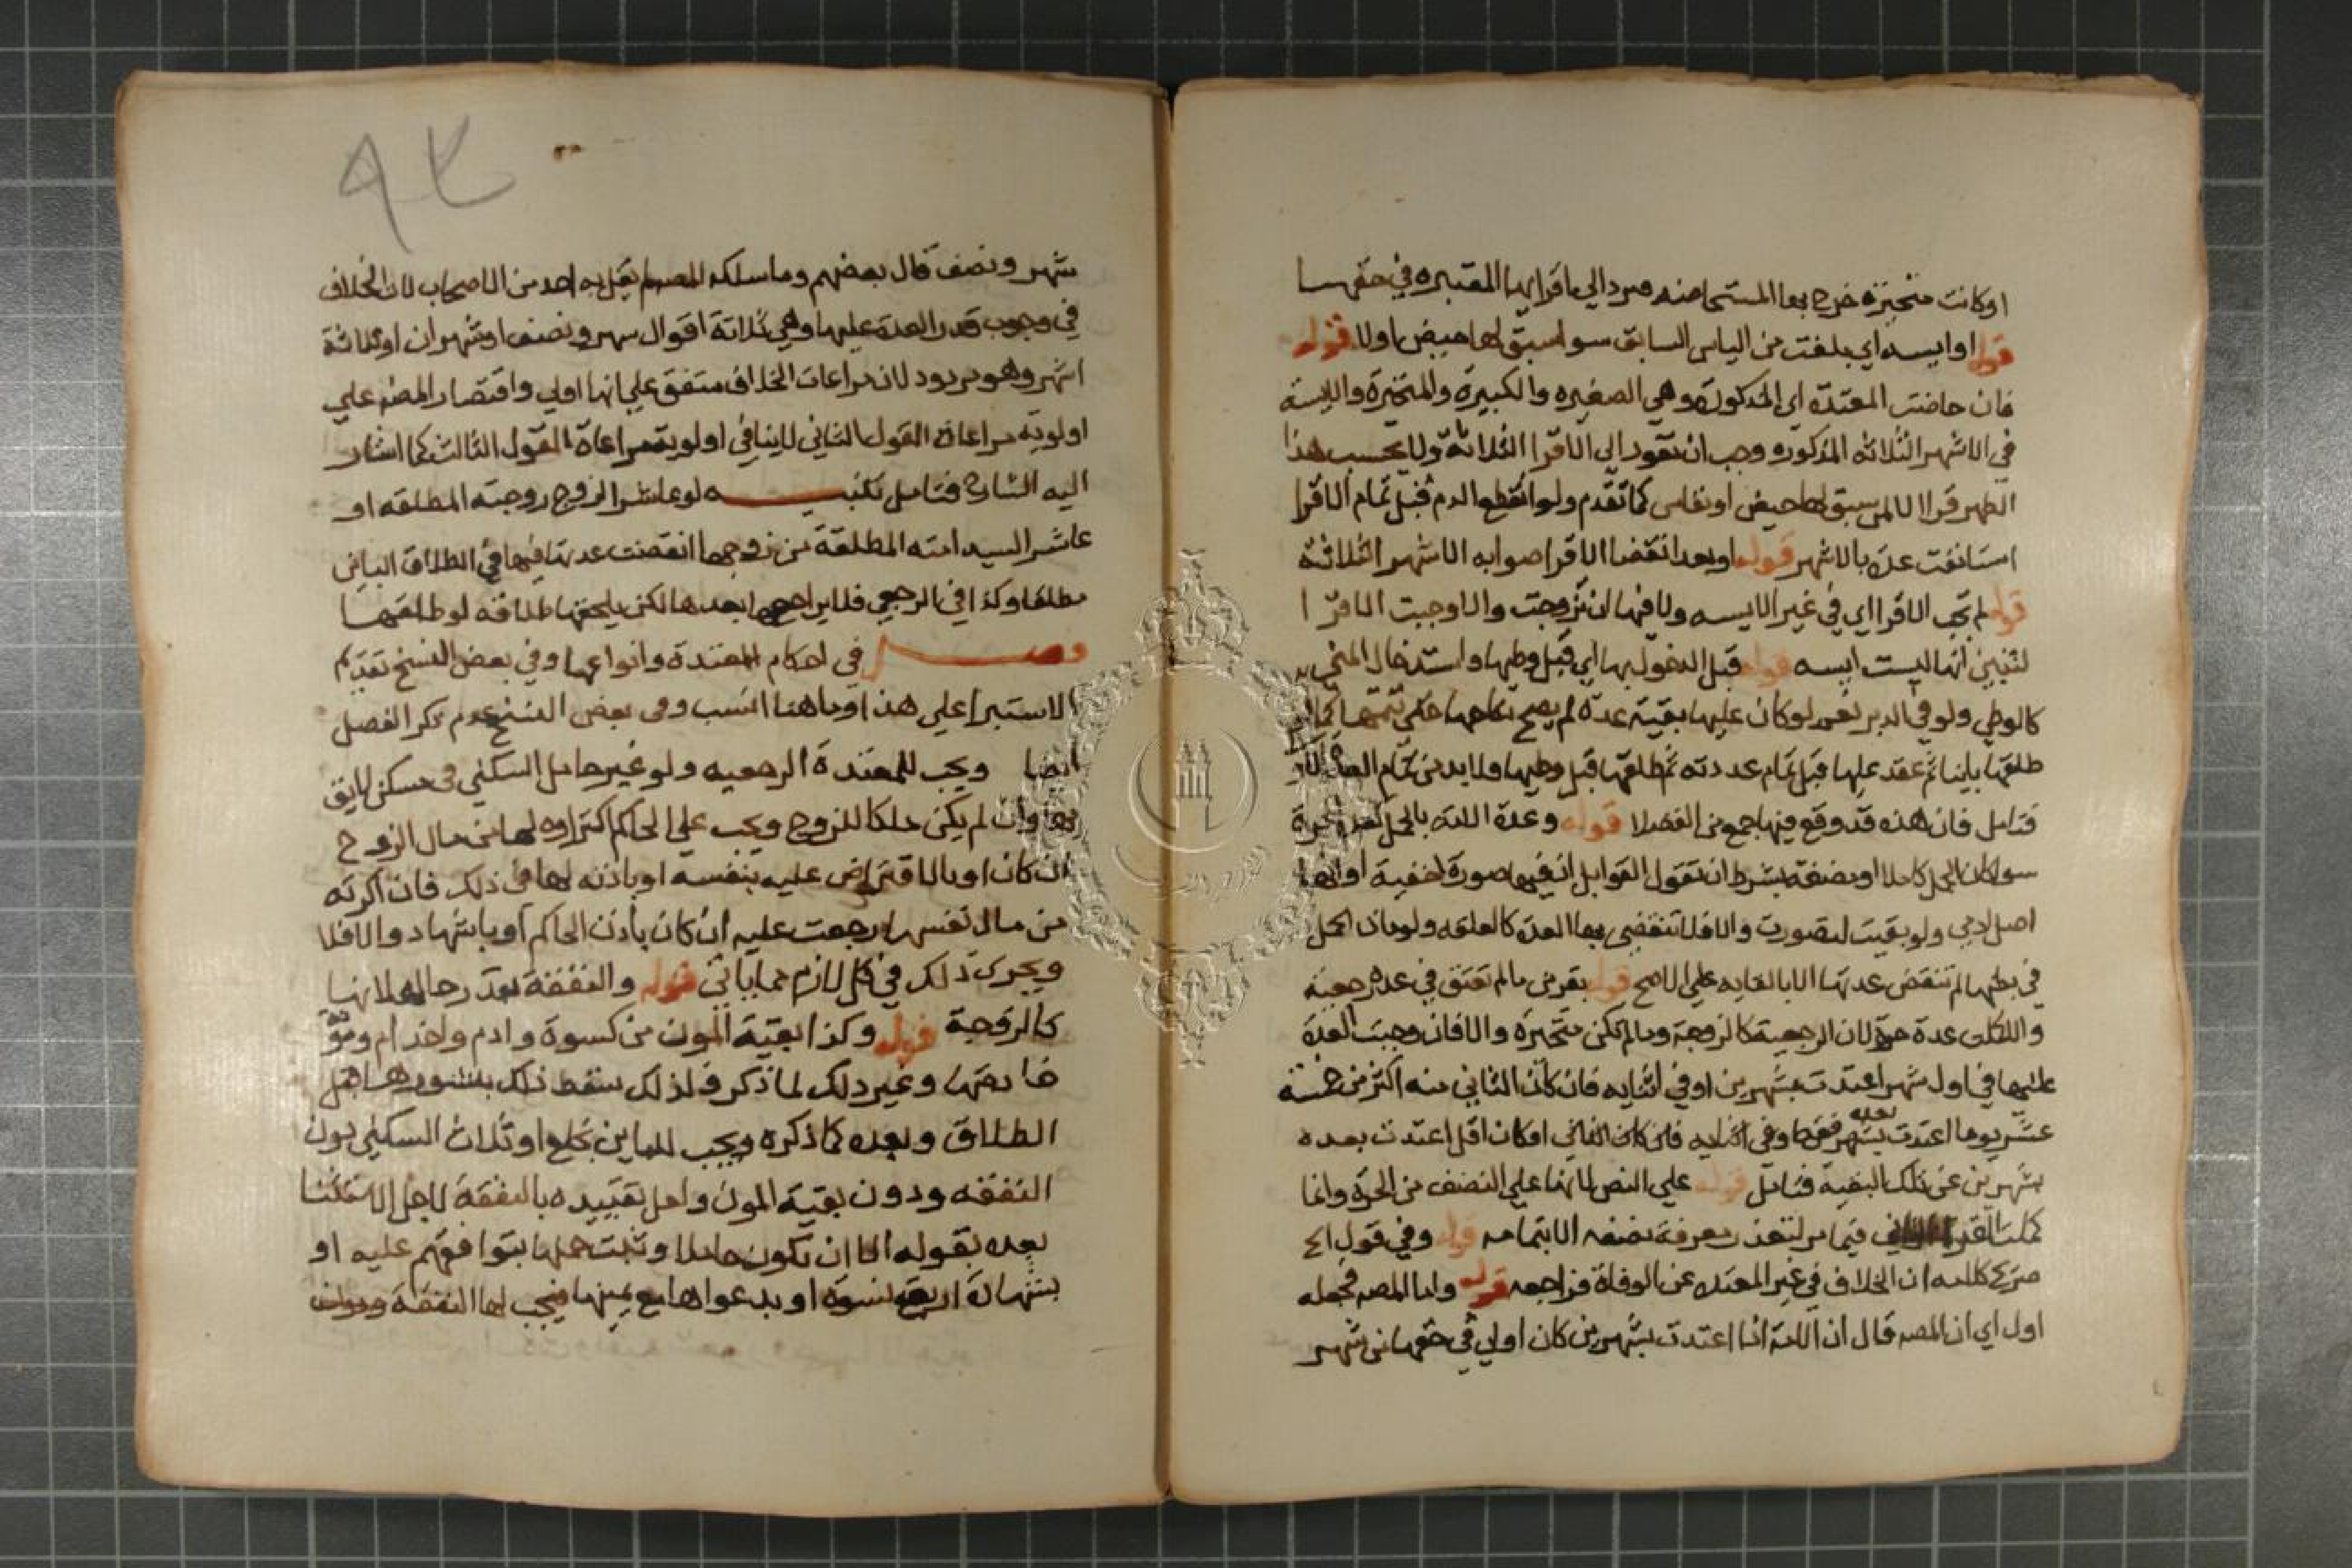 او كانت متحيزة خرج بها المستحاضه فترد الي اقرايها المعتبره في حقها
قوله او ايسه اي بلغت سن الياس السابق سوا سبق لها حيض اولا قوله
فان حاضت المعتدة اي المذكورة وهي الصغيره والكبيرة والمتحيرة والايسة
في الاشهر الثلاثه المذكوره وجب ان تعود الي الاقرا الثلاثة ولا يحسب هذا
الطهر قرا الا لمن سبق لها حيض او نفاس كما تقدم ولو انقطع الدم قبل تمام الاقرا
استانفت عدة بالاشهر قوله او بعد انقضا الاقرا صوابه الاشهر الثلاثة
قوله لم تجب الاقرا اي في غير الايسه ولا فيها ان تزوجت والا وجبت الاقرا
لتبين انها ليست ايسه قوله قبل الدخول بها اي قبل وطيها واستدخال المني
كالوطي ولو في الدبر نعم لو كان عليها بقية عدة لم يصح نكاحها حتي تتمها كما لو
طلقها باينا ثم عقد عليها قبل تمام عددته ثم طلقها قبل وطيها ولا بد من تمام العدة الاولي
فتامل فان هذه قد وقع فيها جمع من الفضلا قوله وعدة الامة بالحمل كعدة الحرة
سوا كان الحمل كاملا او مضغة بشرط ان تقول القوابل ان فيها صورة خفية او انها
اصل ادمي ولو بقيت لتصورت والا فلا تنقضي بها العدة كالعلقه ولو مات الحمل
في بطنها لم تنقض عدتها الا بالقايه علي الاصح قوله بقرين ما لم تعتق في عدة رجعية
والا فتكمل عدة حرة لان الرجعية كالزوجة وما لم تكن متحيرة والا فان وجبت العدة
عليها في اول شهر اعتدت بشهرين او في اثنايه فان كان الثاني منه اكثر من خمسة
عشر يوما اعتدت بشهر بعده فقط او في اثنايه فان كان الفاني او كان اقل اعتدت بعده
بشهرين عن تلك البقية فتامل قوله علي النص لانها علي النصف من الحرة وانما
كملت القر فيما مر لتعذر معرفة نصفه الا بتمامه قوله وفي قول الخ
صريح كلامه ان الخلاف في غير المعتدة عن الوفاة فراجعه قوله واما المصه فجعله
اول اي ان المصه قال ان الامة اذا اعتدت بشهرين كان اولي في حقها من شهر
٩٤
شهر ونصف قال بعضهم وما سلكه المصه لم يقل به احد من الاصحاب لان الخلاف
في وجوب قدر العدة عليها وهي ثلاثة اقوال شهر ونصف او شهران او ثلاثة
اشهر وهو مردود لان مراعات الخلاف متفق علي انها اولي واقتصار المصه علي
اولوية مراعاة القول الثاني لا ينافي اولوية مراعاة القول الثالث كما اشار
اليه الشارح فتامل تنبيه لو عاشر الزوج زوجته المطلقه او
عاشر السيد امته المطلقة من زوجها انقضت عدتها فيها في الطلاق الباين
مطلقا وكذا في الرجعي فلا يراجعها بعدها لكن يلحقها طلاقه لو طلقها
فصل في احكام المعتدة وانواعها وفي بعض النسخ تقديم
الاستبرا علي هذا وما هنا انسب وفي بعض النسخ عدم ذكر الفصل
ايضا ويجب للمعتدة الرجعيه ولو غير حامل السكني في مسكن لايق
بها وان لم يكن ملكا للزوج ويجب علي الحاكم اكتراوه لها من مال الزوج
ان كان او بالاقتراض عليه بنفسه او باذنه لها في ذلك فان اكرته
من مال نفسها رجعت عليه ان كان باذن الحاكم او باشهاد والا فلا
ويجري ذلك في كل لازم مما ياتي قوله والنفقة بقدر حاله لانها
كالزوجة قوله وكذا بقية المون من كسوة وادم واخدام ومؤنة
خادمها وغير ذلك لما ذكر فلذلك سقط ذلك بنشوزها قبل
الطلاق وبعده كما ذكره ويجب للباين بخلع او ثلاث السكني دون
النفقه ودون بقية المون ولعل تقييده بالنفقة لاجل الاستثنا
بعده بقوله الا ان تكون حاملا وثبت حملها بتوافقهم عليه او
بشهادة اربعة نسوة او بدعواها مع يمينها فيجب لها النفقة